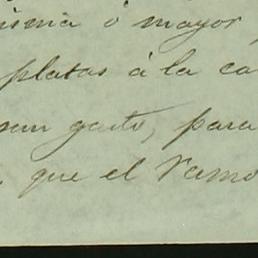 misma ó mayor
platas á la ca
gasto, para
que el ramo